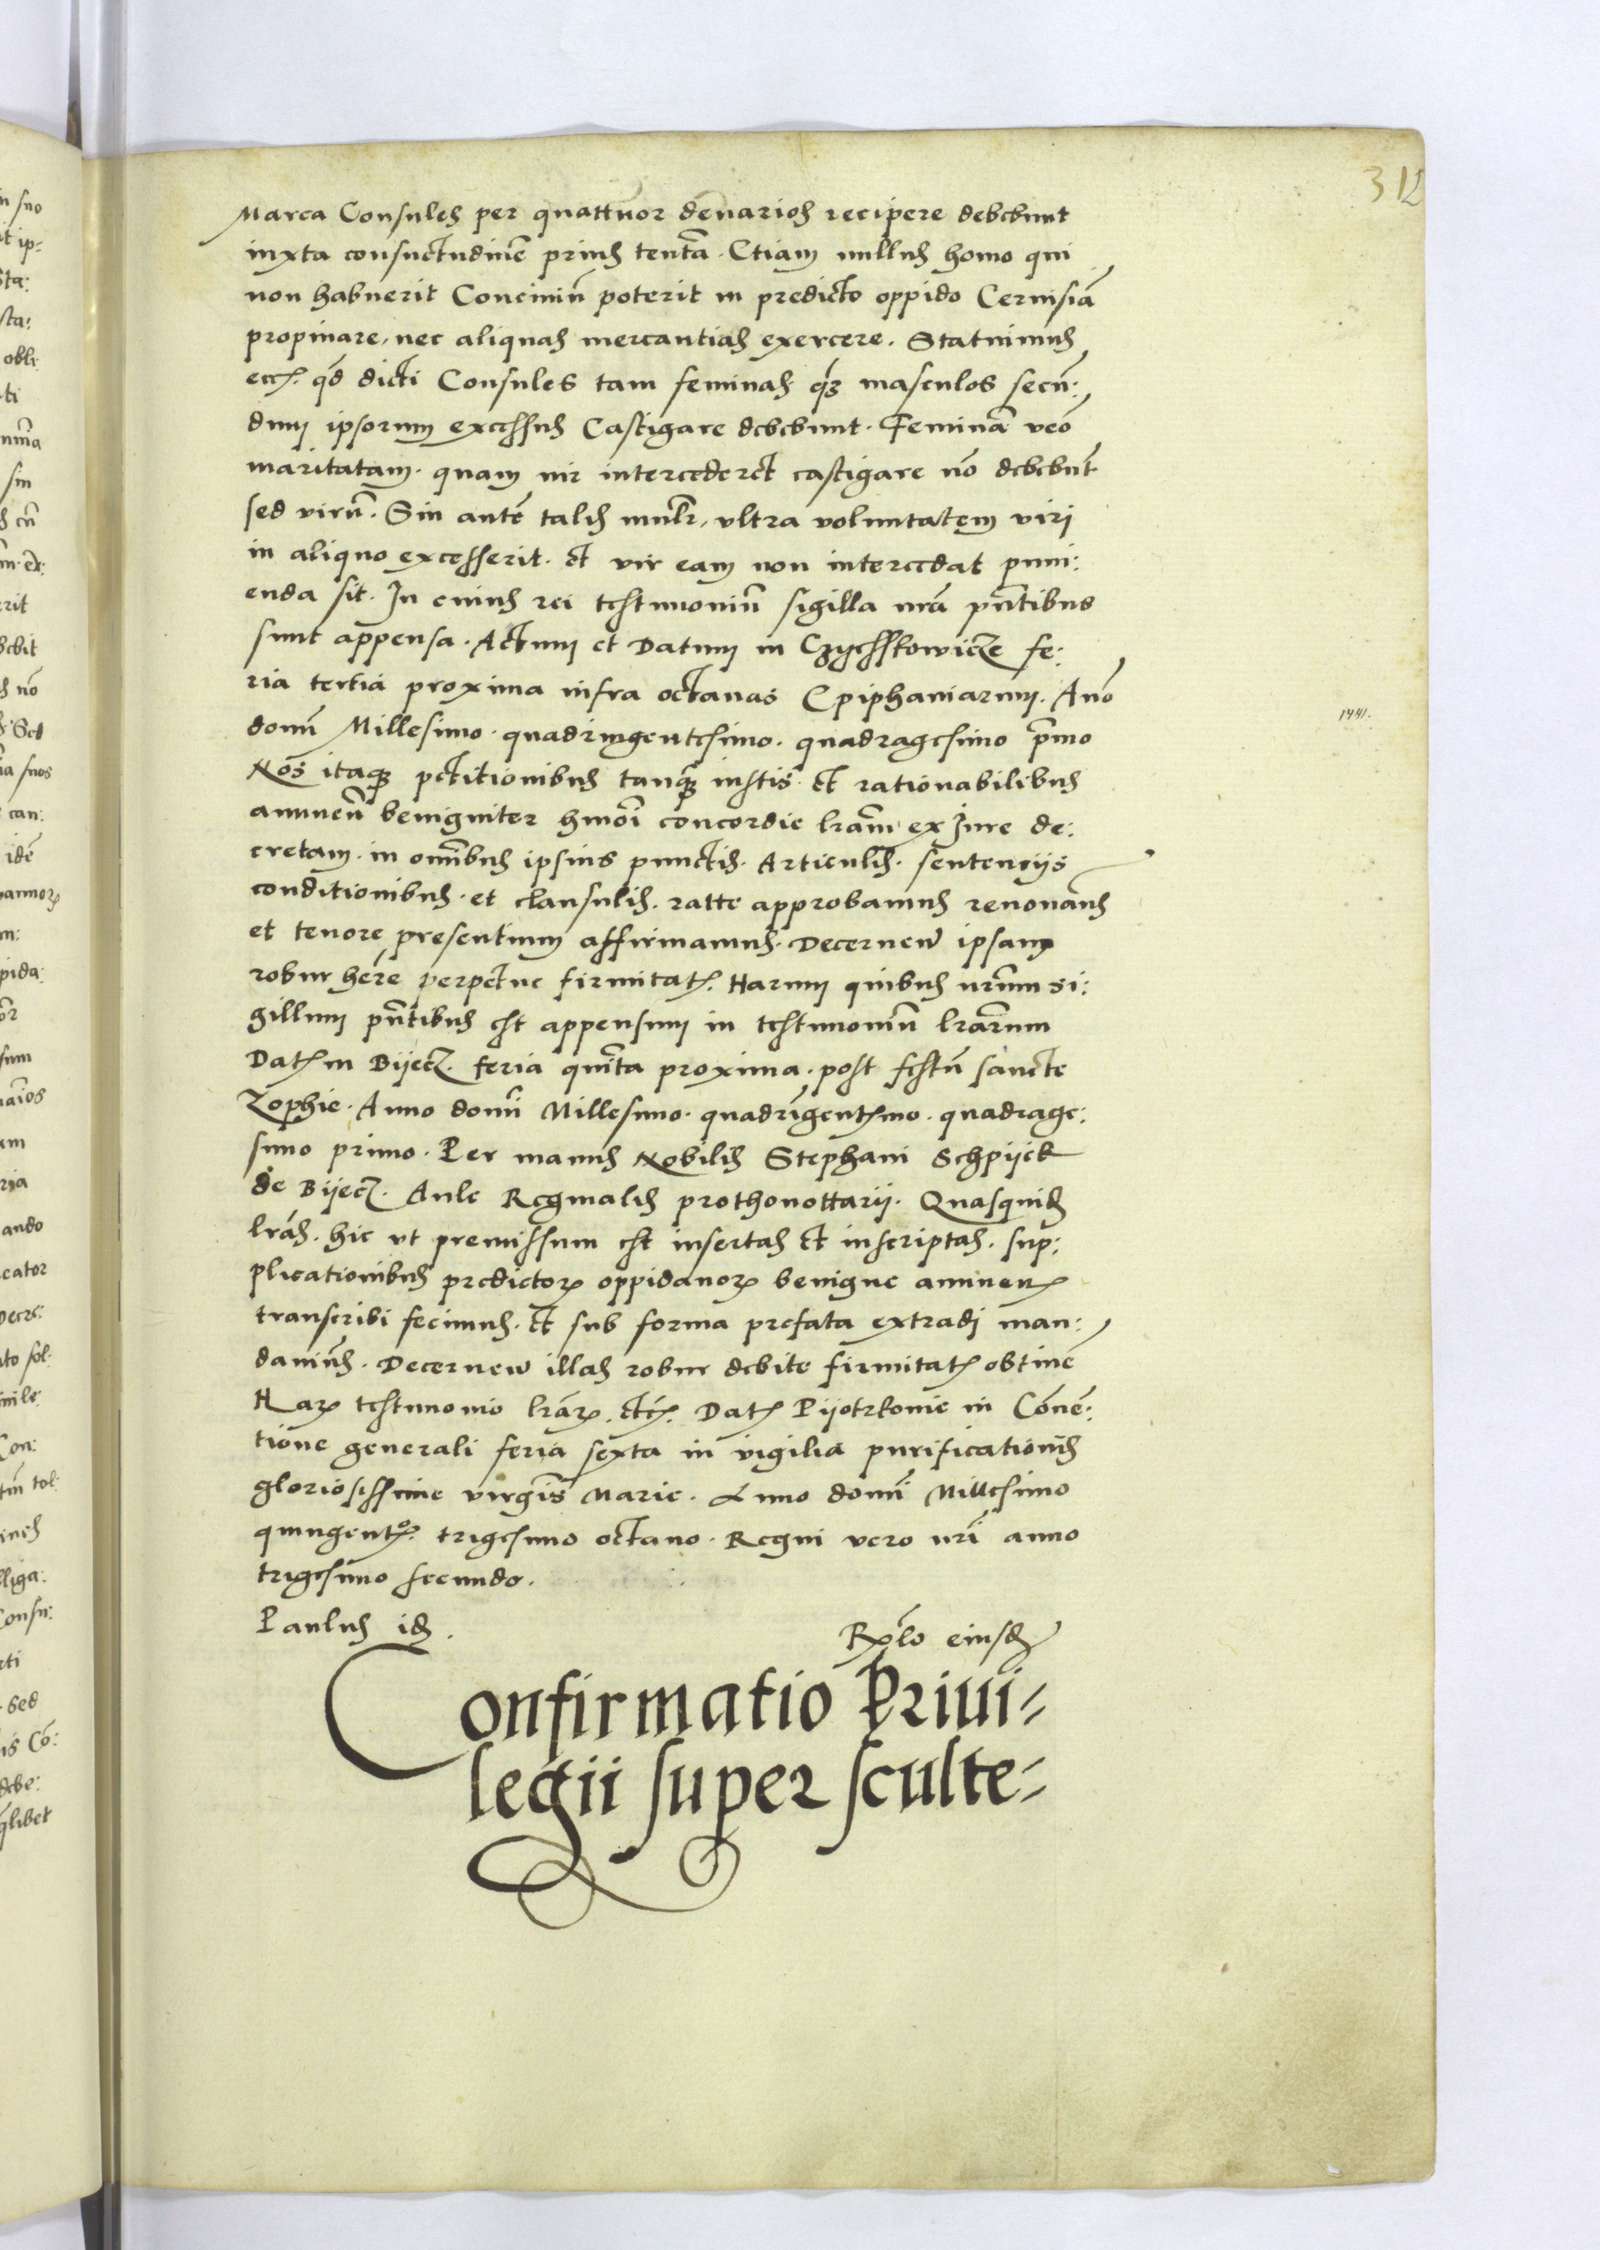 312
Marca Consules per quattuor denarios recipere debebunt
iuxta consuetudinē prius tentā. Etiam nullus homo qui
non habuerit Conciuiū poterit in predicto oppido Ceruisiā
propinare, nec aliquas mercantias exercere. Statuimus
ecc. qd dicti Consules tam feminas qz masculos secū:
dum ipsorum excessus Castigare debebunt. Feminā veō
maritatam. quam vir intercederet castigare nō debebūt
sed virū. Sin autē talis mulr, vltra voluntatem viri
in aliquo excesserit. et vir eam non intercedat puni:
enda sit. In cuius rei testimoniū sigilla nrā pn̄tibus
sunt appensa. Actum et Datum in Czyhsskowicze fe:
ria tertia proxima infra octauas Epiphaniarum. Anō
domī Millesimo. quadringentesimo. quadragesimo p̄mo
1441.
Nos itaqz petitionibus tanqz iustis et rationabilibus
annuen̄ benigniter hmōi concordie lrām ex Iure de:
cretam. in om̄ibus ipsius punctis. Articulis. sentenciis
conditionibus. et clausulis. ratte approbamus renouam̄s
et tenore presentium affirmamus. Decernen ipsam
robur hēre perpetue firmitat. Harum quibus nr̄um si:
gillum pn̄tibus est appensum in testimoniū lrārum
Dat in Byecz. feria quīta proxima. post festū sancte
Zophie. Anno domī Millesimo. quadrīgentmo. quadrage:
simo primo. Per manus Nobilis Stephani Schpijek
de Bijecz. Aule Reginalis prothonottarii. Quasquid
lrās. hic vt premissum est insertas et inscriptas. sup:
plicationibus predictor oppidanor benigne annuen
transcribi fecimus. et sub forma prefata extradi man:
dauim̄s. Decernen illas robur debite firmitat obtinē
Har testimonio lrār. etc. Dat Pijotrkouie in Cōnē:
tione generali feria sexta in vigilia purificationis
gloriosissime virgīs Marie. Anno domī Millesimo
quingento. trigesimo octauo. Regni vero nrī anno
trigesimo secundo.
Paulus id.
Rlō eiusd
Confirmatio Priui-
legii super sculte-